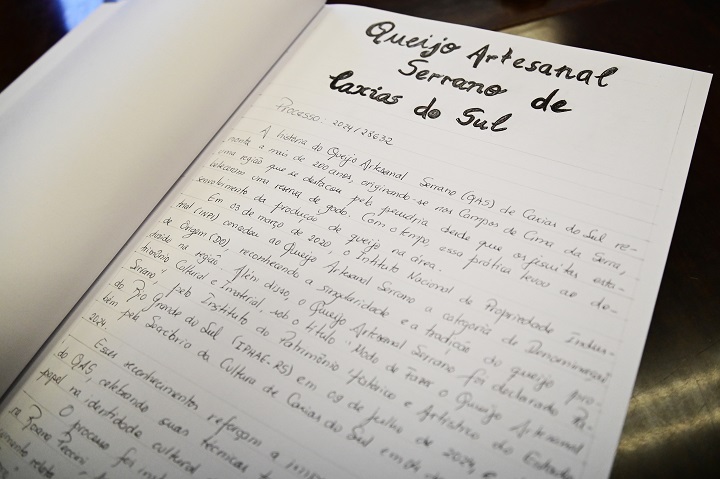 Queijo Artesanal
Serrano de
Caxias do Sul
Processo: 2024/28632
A história do Queijo Artesanal Serrano (QAS) de Caxias do Sul re-
monta a mais de 200 anos, originando-se nos Campos de Cima da Serra,
uma região que se destacou pela pecuária desde que os jesuítas esta-
beleceram uma reserva de gado. Com o tempo, essa prática levou ao de-
senvolvimento da produção de queijo na área.
Em 03 de março de 2020, o Instituto Nacional de Propriedade Indus-
trial (INPI) concedeu ao Queijo Artesanal Serrano a categoria de Denominação
de Origem (DO), reconhecendo a singularidade e a tradição do queijo pro-
duzido na região. Além disso, o Queijo Artesanal Serrano foi declarado Pa-
trimônio Cultural e Imaterial, sob o título "Modo de Fazer o Queijo Artesanal
Serrano", pelo Instituto do Patrimônio Histórico e Artístico do Estado
do Rio Grande do Sul (IPHAE-RS) em 09 de julho de 2024, e
bém pela Secretaria da Cultura de Caxias do Sul em
2024.
Esses reconhecimentos reforçam a
do QAS, celebrando suas técnicas
papel na identidade cultural
O processo foi
ra